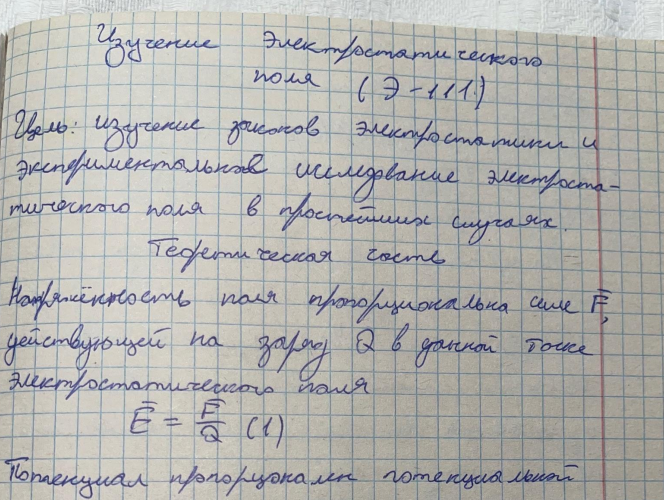 Изучение электростатического
поля (Э-111.)
Цель: изучение законов электростатики и
экспериментальное исследование электроста-
тического поля в простейших случаях.
Теоретическая часть
Напряжённость поля пропорциональна силе F̅,
действующей на заряд Q в данной точке
электростатического поля
E̅ = F̅/Q (1)
Потенциал пропорционален потенциальной